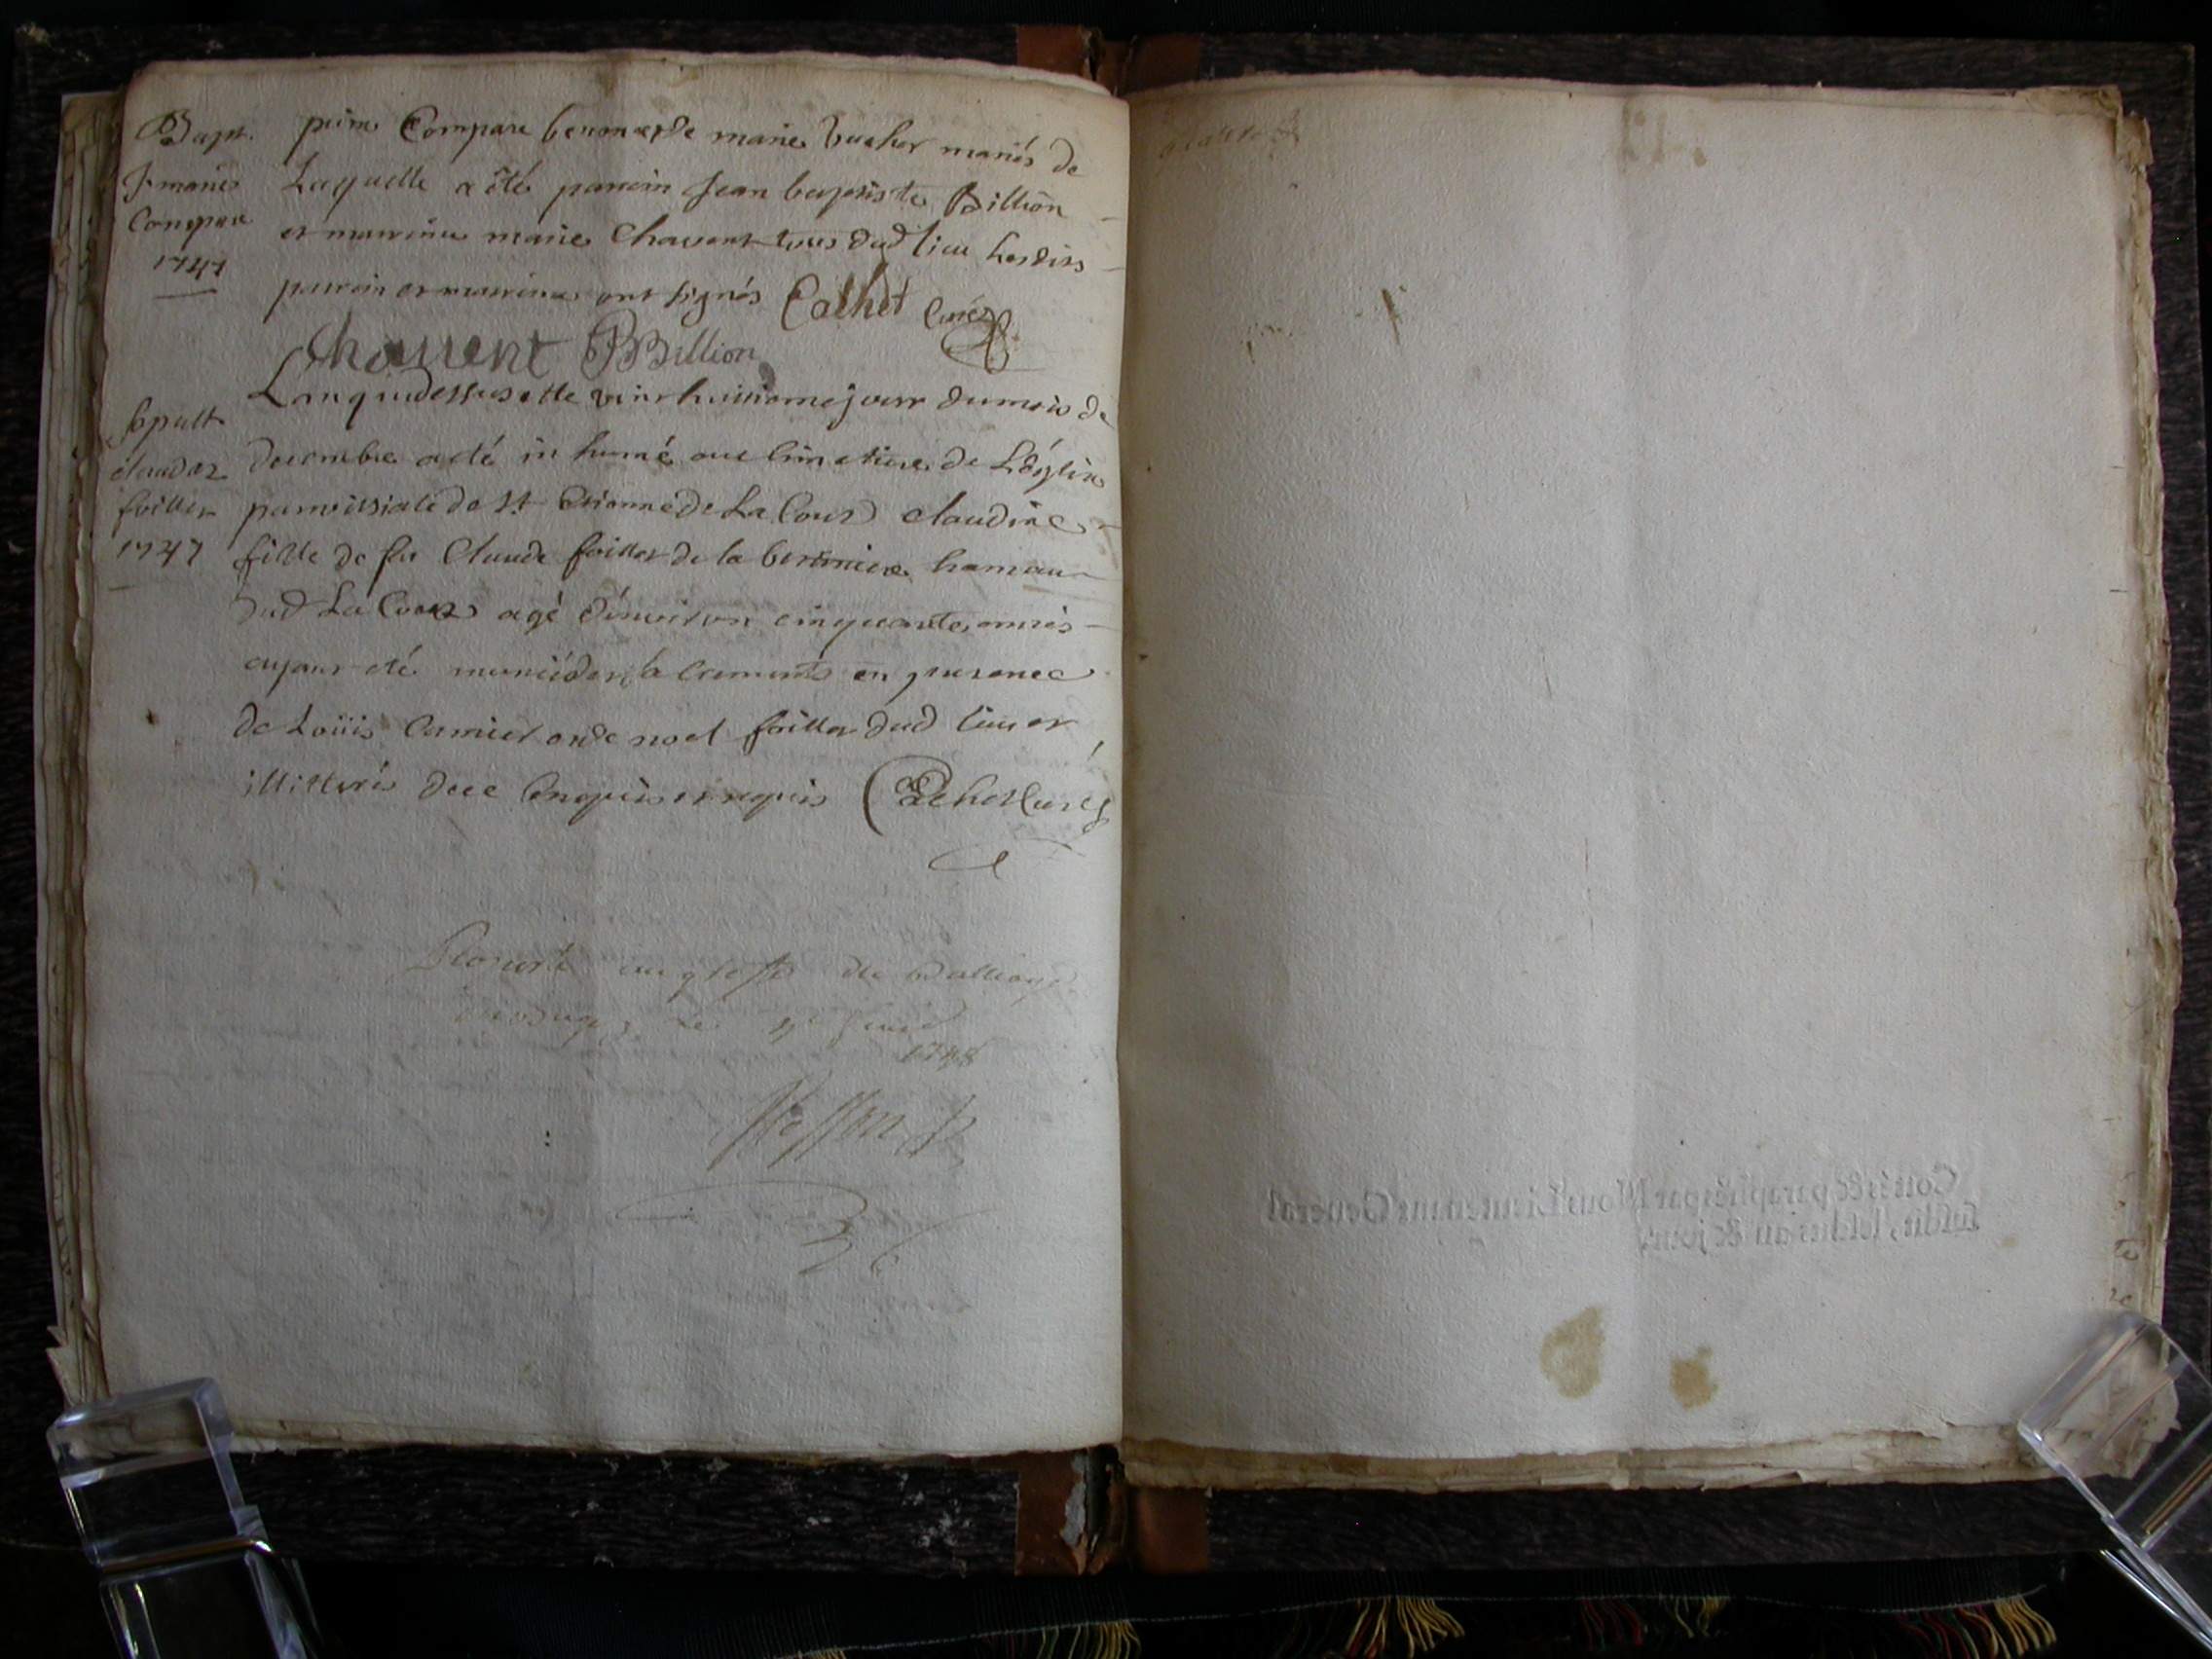 Bapt.
J. marie
Compare
1747
Compare benon et de marie mariés de
Laquelle a été parrein Jean baptiste Billion
et marreine marie Chavent tous dud lieu Lesdits
parrein et marreine ont signés Cachet Curé
Chavent Billion
sepult
claudine
foiller
1747
L'an qui dessus et le vint huitiéme jour du mois de
decembre a eté in humé au Cimetiere de L'église
parroissiale de St Etienne de La Cour claudine
fille de feu Claude foiller de la hameau
dud La Cour agé d'environ cinquante années
ayant eté munié des sacrements en presence
de Loüis Camier et de noel foiller dud lieu et
illitterés de ce Enquis et requis Cachet Curé
au greffe du Balliage
1748
Cottés & paraphés par Nous Lieutenant General
susdit, lesdits an & jour.